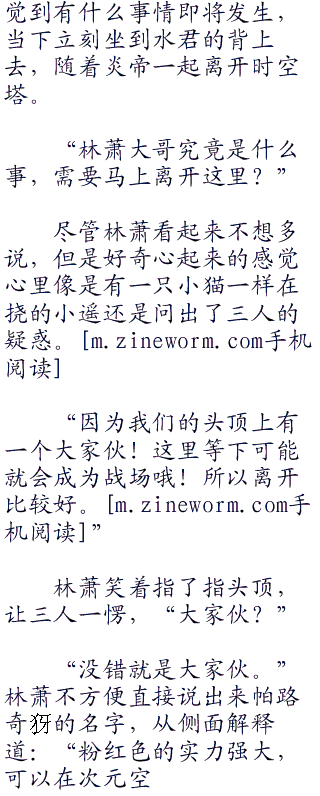 觉到有什么事情即将发生，
当下立刻坐到水君的背上
去，随着炎帝一起离开时空
塔。
“林萧大哥究竟是什么
事，需要马上离开这里？”
尽管林萧看起来不想多
说，但是好奇心起来的感觉
心里像是有一只小猫一样在
挠的小遥还是问出了三人的
疑惑。[m.zineworm.com手机
阅读]
“因为我们的头顶上有
一个大家伙！这里等下可能
就会成为战场哦！所以离开
比较好。[m.zineworm.com手
机阅读]”
林萧笑着指了指头顶，
让三人一愣，“大家伙？”
“没错就是大家伙。”
林萧不方便直接说出来帕路
奇犽的名字，从侧面解释
道：“粉红色的实力强大，
可以在次元空